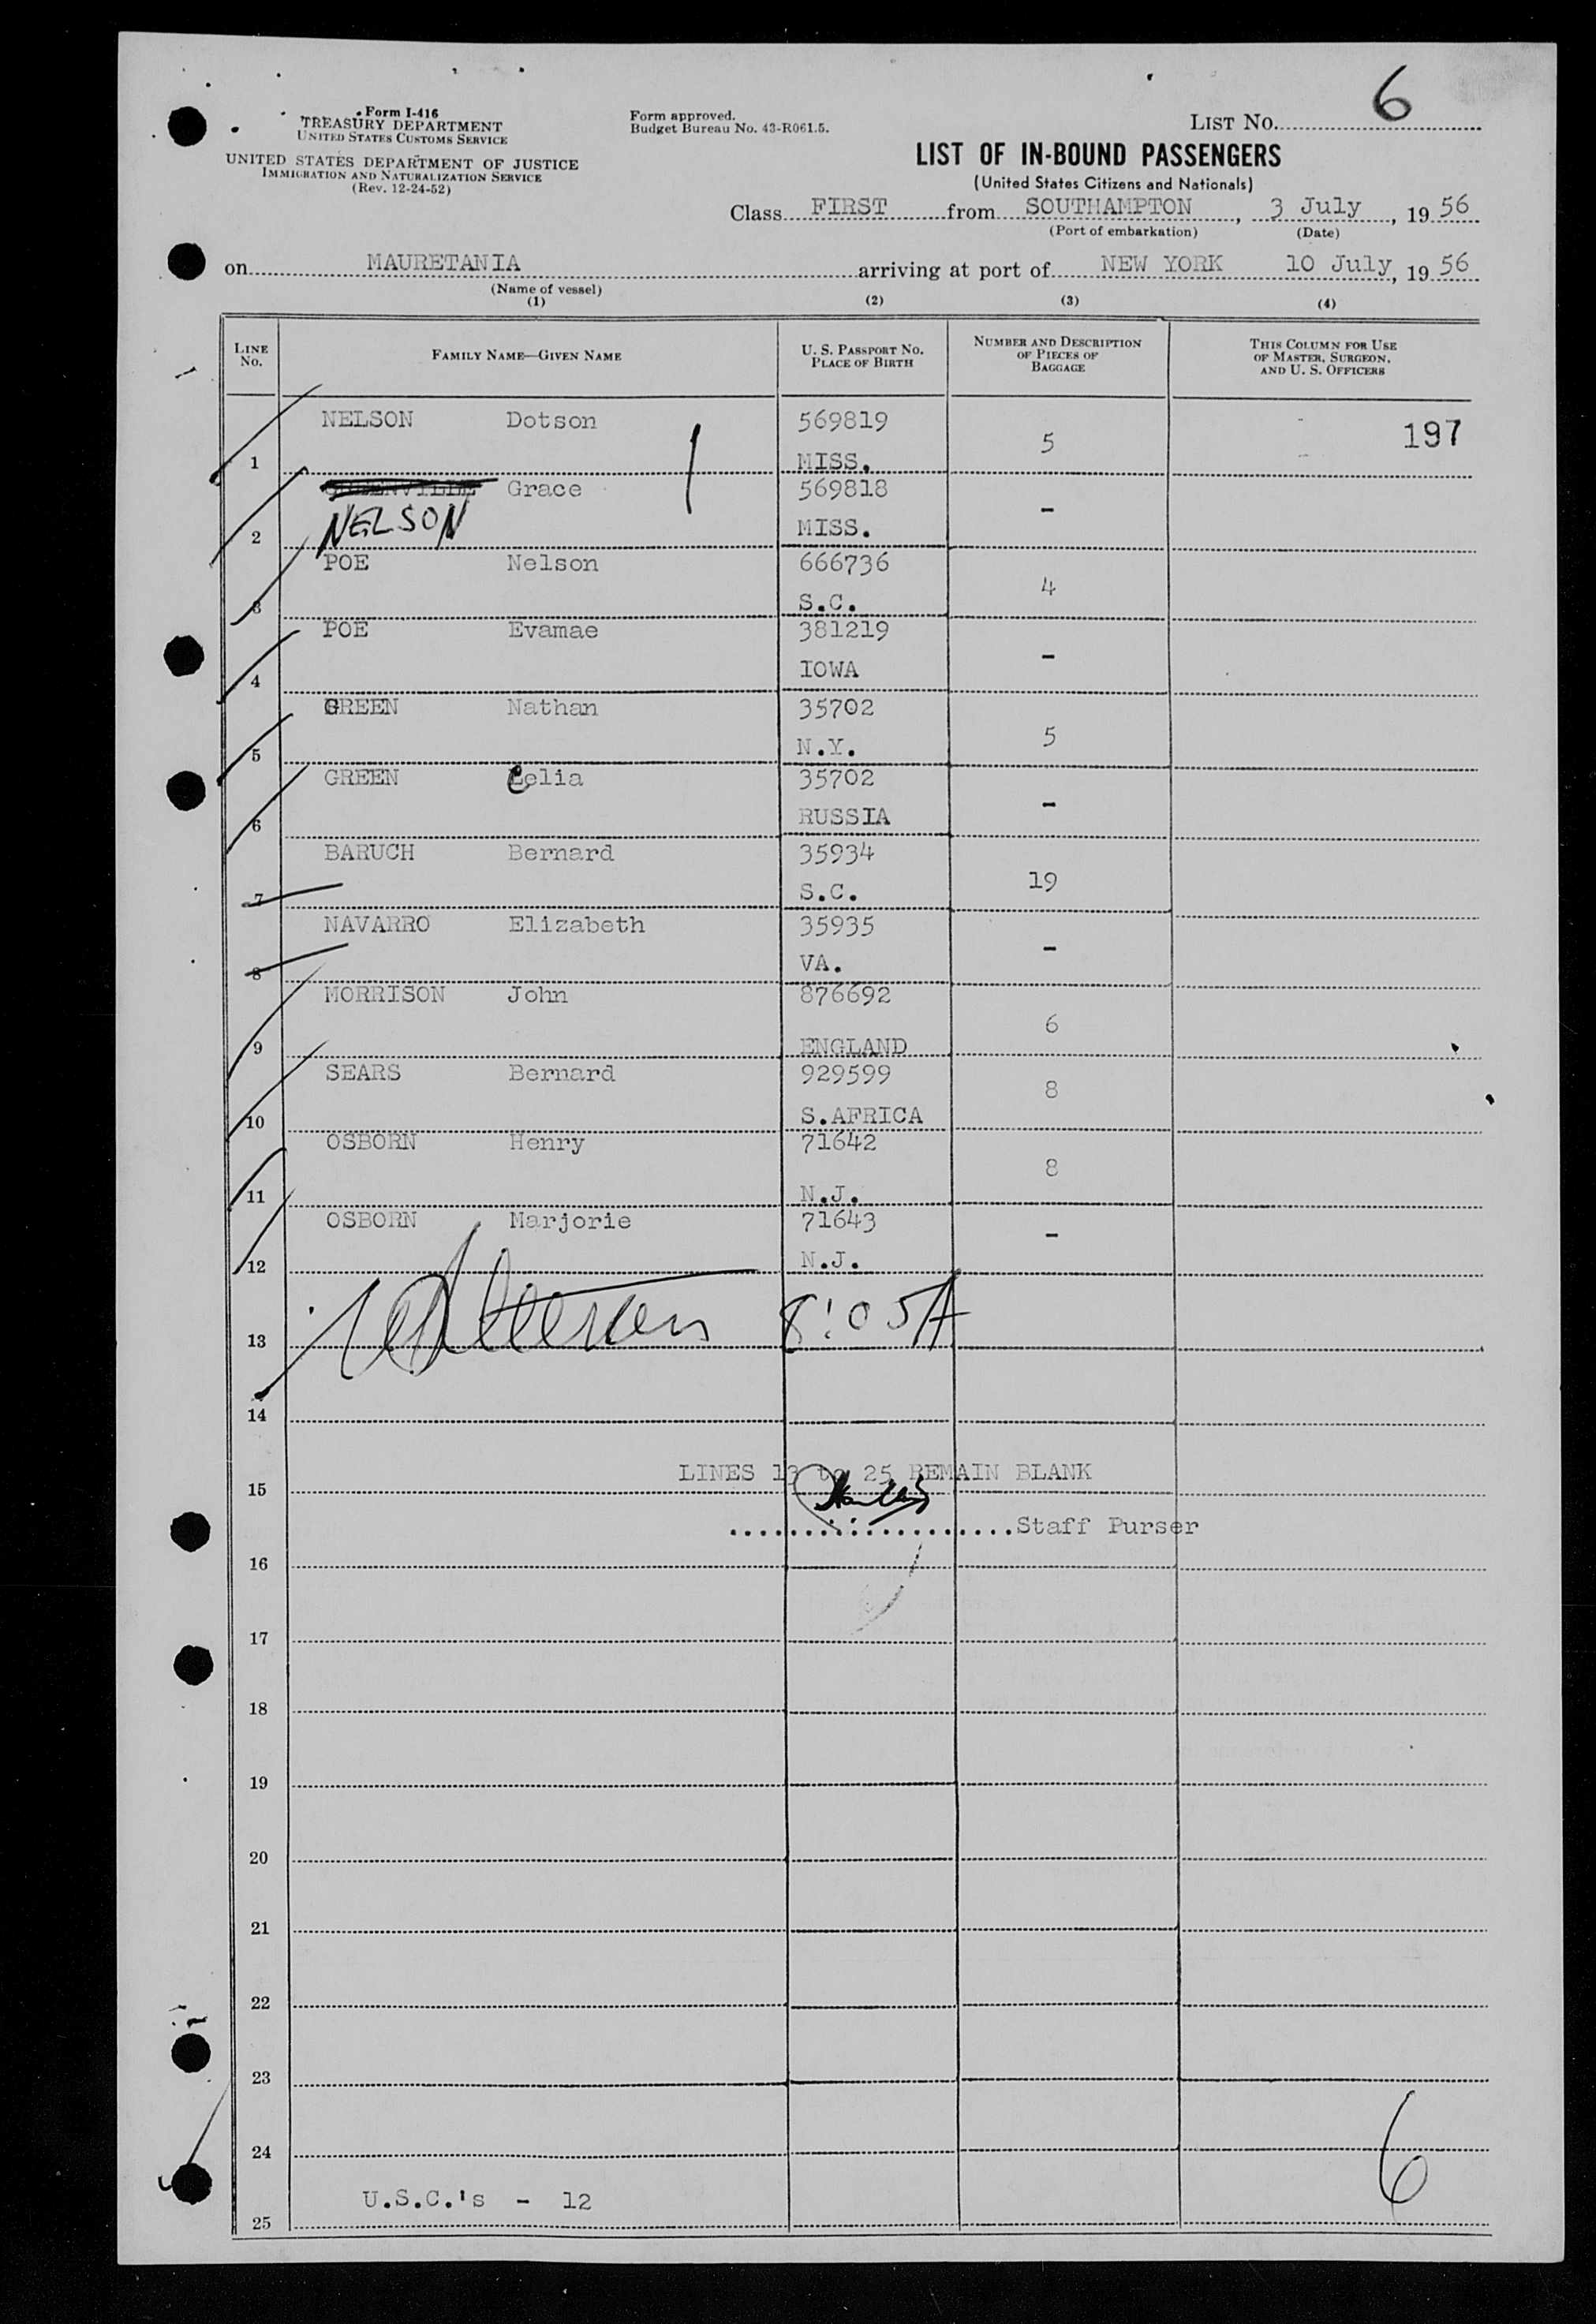 6
Form I-416
TREASURY DEPARTMENT
UNITED STATES CUSTOMS SERVICE
UNITED STATES DEPARTMENT OF JUSTICE
IMMIGRATION AND NATURALIZATION SERVICE
(Rev. 12-24-52)
Form approved.
Budget Bureau No. 43-R061.5.
LIST NO.
LIST OF IN-BOUND PASSENGERS
(United States Citizens and Nationals)
Class FIRST from SOUTHAMPTON, 3 July, 1956
(Port of embarkation) (Date)
on MAURETANIA arriving at port of NEW YORK 10 July, 1956
(Name of vessel)
(1) (2) (3) (4)
LINE NO. FAMILY NAME—GIVEN NAME U. S. PASSPORT NO. PLACE OF BIRTH NUMBER AND DESCRIPTION OF PIECES OF BAGGAGE THIS COLUMN FOR USE OF MASTER, SURGEON, AND U. S. OFFICERS
NELSON Dotson 569819 197
1 MISS. 5
Grace 569818
2 NELSON MISS. -
POE Nelson 666736
3 S.C. 4
POE Evamae 381219
4 IOWA -
GREEN Nathan 35702
5 N.Y. 5
GREEN Celia 35702
6 RUSSIA -
BARUCH Bernard 35934
7 S.C. 19
NAVARRO Elizabeth 35935
8 VA. -
MORRISON John 876692
9 ENGLAND 6
SEARS Bernard 929599
10 S.AFRICA 8
OSBORN Henry 71642
11 N.J. 8
OSBORN Marjorie 71643
12 N.J. -
13 8:05A
14
LINES 13 to 25 REMAIN BLANK
15
Staff Purser
16
17
18
19
20
21
22
23
24 6
U.S.C.'s - 12
25